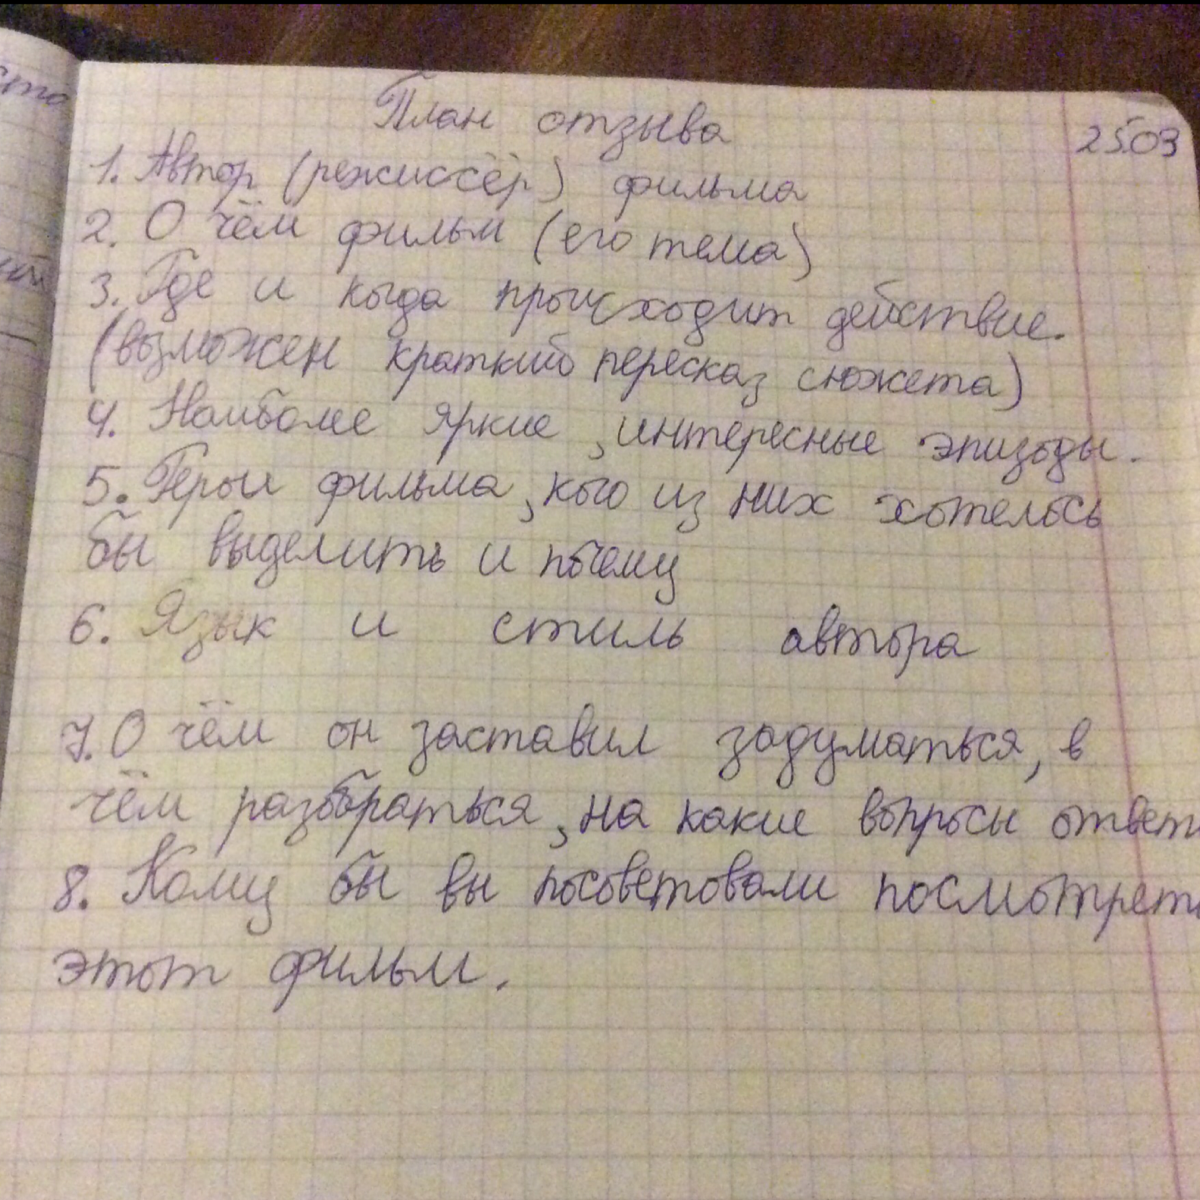 План отзыва
25.03
1. Автор (режиссёр) фильма
2. О чём фильм (его тема)
3. Где и когда происходит действие.
(возможен краткий пересказ сюжета)
4. Наиболее яркие, интересные эпизоды.
5. Герои фильма, кого из них хотелось
бы выделить и почему
6. Язык и стиль автора
7. О чём он заставил задуматься, в
чём разобраться, на какие вопросы ответ
8. Кому бы вы посоветовали посмотреть
этот фильм.